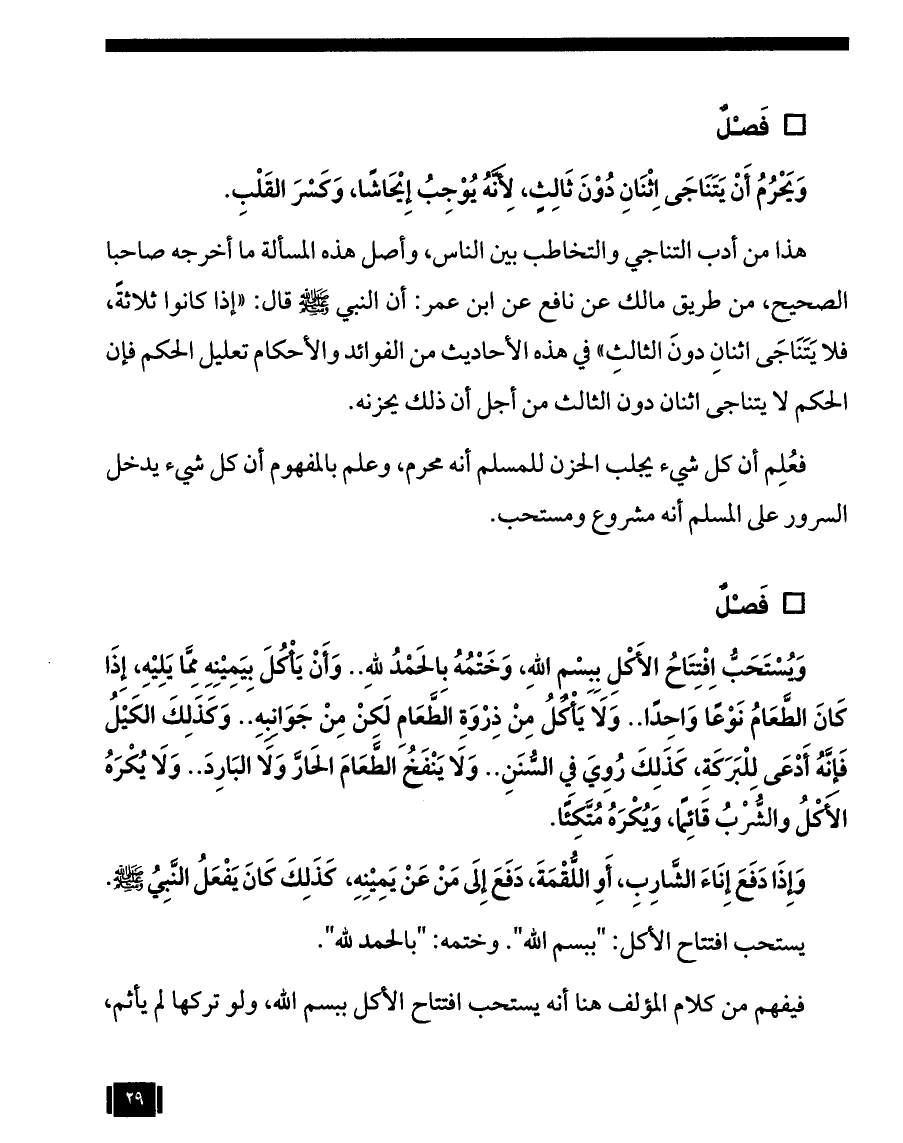 □ فَصْلٌ
وَيَحْرُمُ أَنْ يَتَنَاجَى اِثْنَانِ دُوْنَ ثَالِثٍ، لِأَنَّهُ يُوْجِبُ إِيْحَاشًا، وَكَسْرَ القَلْبِ.
هذا من أدب التناجي والتخاطب بين الناس، وأصل هذه المسألة ما أخرجه صاحبا
الصحيح، من طريق مالك عن نافع عن ابن عمر: أن النبي ﷺ قال: «إذا كانوا ثلاثةً،
فلا يَتَنَاجَى اثنانِ دونَ الثالثِ» في هذه الأحاديث من الفوائد والأحكام تعليل الحكم فإن
الحكم لا يتناجى اثنان دون الثالث من أجل أن ذلك يحزنه.
فعُلِم أن كل شيء يجلب الحزن للمسلم أنه محرم، وعلم بالمفهوم أن كل شيء يدخل
السرور على المسلم أنه مشروع ومستحب.
□ فَصْلٌ
وَيُسْتَحَبُّ اِفْتِتَاحُ الأَكْلِ بِبِسْمِ اللهِ، وَخَتْمُهُ بِالحَمْدُ للهِ.. وَأَنْ يَأْكُلَ بِيَمِيْنِهِ مِمَّا يَلِيْهِ، إِذَا
كَانَ الطَّعَامُ نَوْعًا وَاحِدًا.. وَلَا يَأْكُلُ مِنْ ذِرْوَةِ الطَّعَامِ لَكِنْ مِنْ جَوَانِبِهِ.. وَكَذَلِكَ الكَيْلُ
فَإِنَّهُ أَدْعَى لِلْبَرَكَةِ، كَذَلِكَ رُوِيَ فِي السُّنَنِ.. وَلَا يَنْفَخُ الطَّعَامَ الحَارَّ وَلَا البَارِدَ.. وَلَا يُكْرَهُ
الأَكْلُ والشُّرْبُ قَائِمًا، وَيُكْرَهُ مُتَّكِئًا.
وَإِذَا دَفَعَ إِنَاءَ الشَّارِبِ، أَوِ اللُّقْمَةَ، دَفَعَ إِلَى مَنْ عَنْ يَمِيْنِهِ، كَذَلِكَ كَانَ يَفْعَلُ النَّبِيُّ ﷺ.
يستحب افتتاح الأكل: "ببسم الله". وختمه: "بالحمد لله".
فيفهم من كلام المؤلف هنا أنه يستحب افتتاح الأكل ببسم الله، ولو تركها لم يأثم،
٢٩